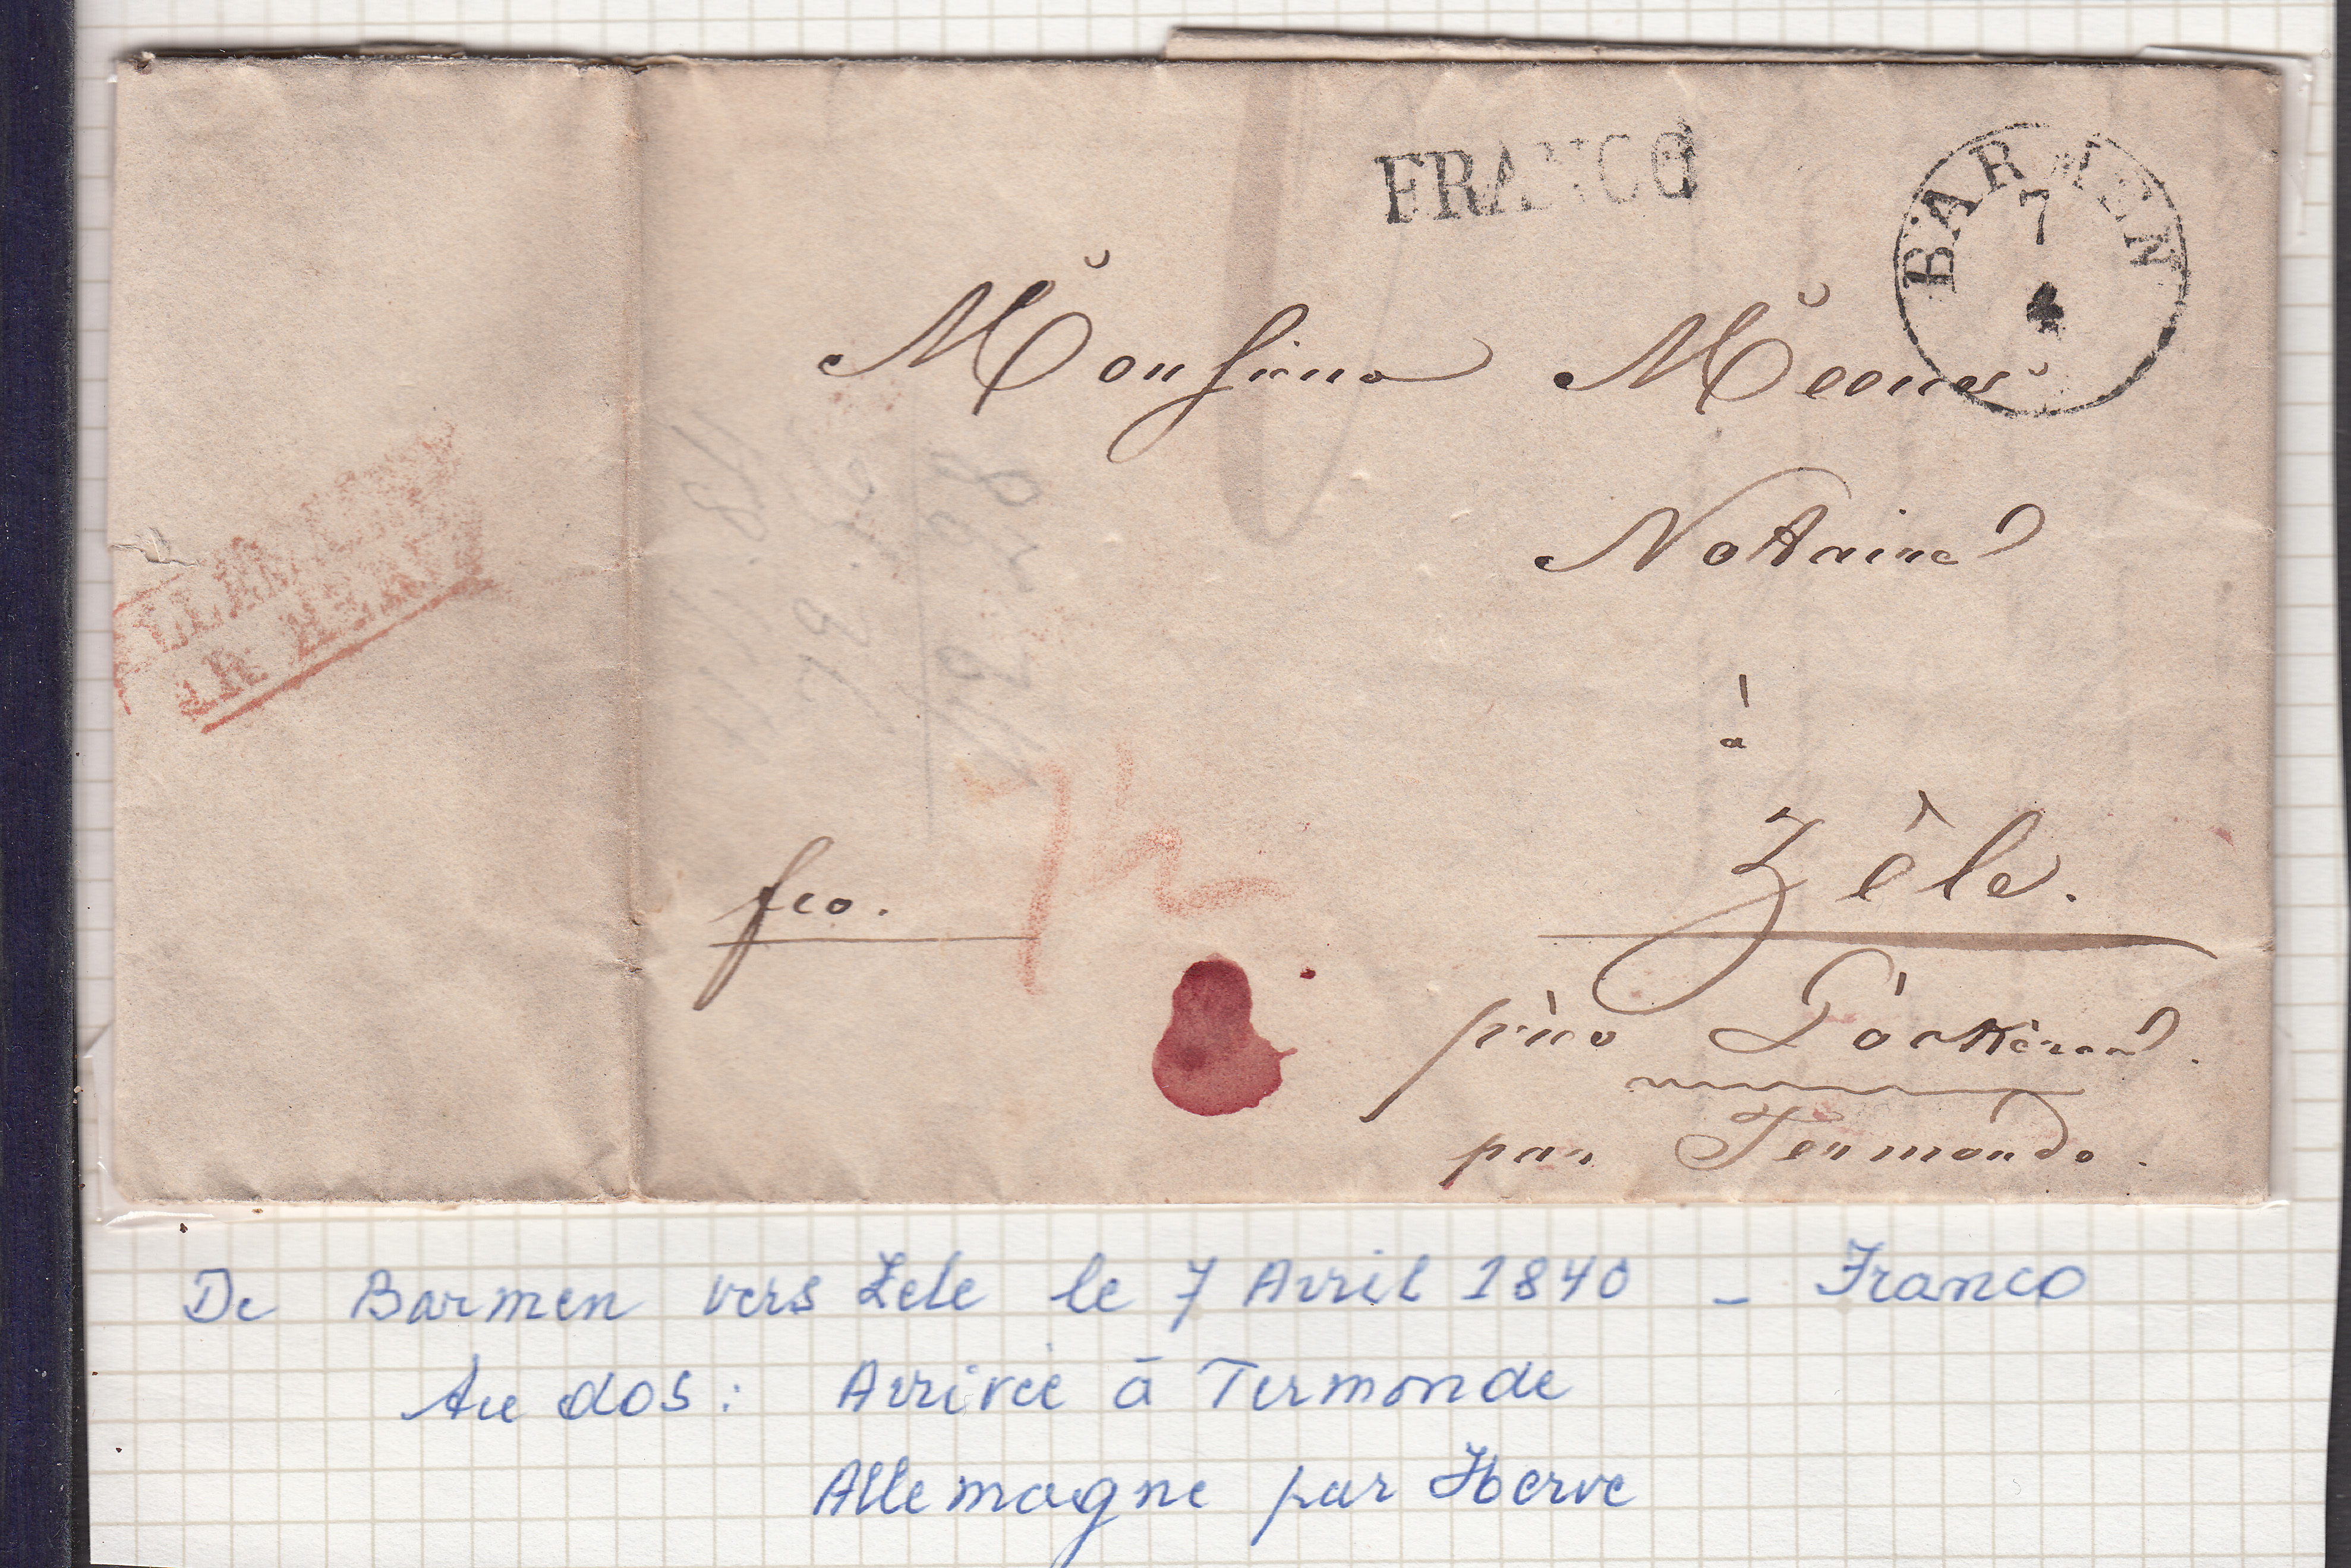 FRANCO
BARMEN
7
4
Monsieur Meeus
Notaire
à
Zêle.
fco.
près Lòckèren.
par Termonde.
De Barmen vers Zele le 7 Avril 1840 - Franco
Au dos: Arrivée à Termonde
Allemagne par Herve